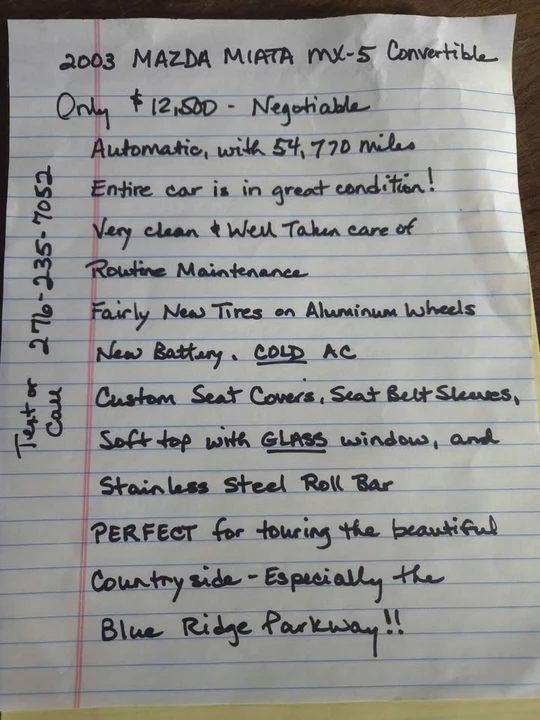 2003 MAZDA MIATA MX-5 Convertible
Only $12,500 - Negotiable
Automatic, with 54,770 miles
Entire car is in great condition!
Very clean & Well Taken care of
Routine Maintenance
Fairly New Tires on Aluminum Wheels
New Battery. COLD AC
Custom Seat Covers, Seat Belt Sleeves,
Soft top with GLASS window, and
Stainless Steel Roll Bar
PERFECT for touring the beautiful
Countryside - Especially the
Blue Ridge Parkway!!
Text or
Call 276-235-7052